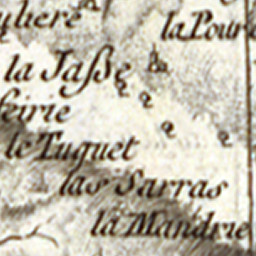 yliere
la Pour
la Jasse
feirie
le Tuguet
las Sarras
la Mandrie